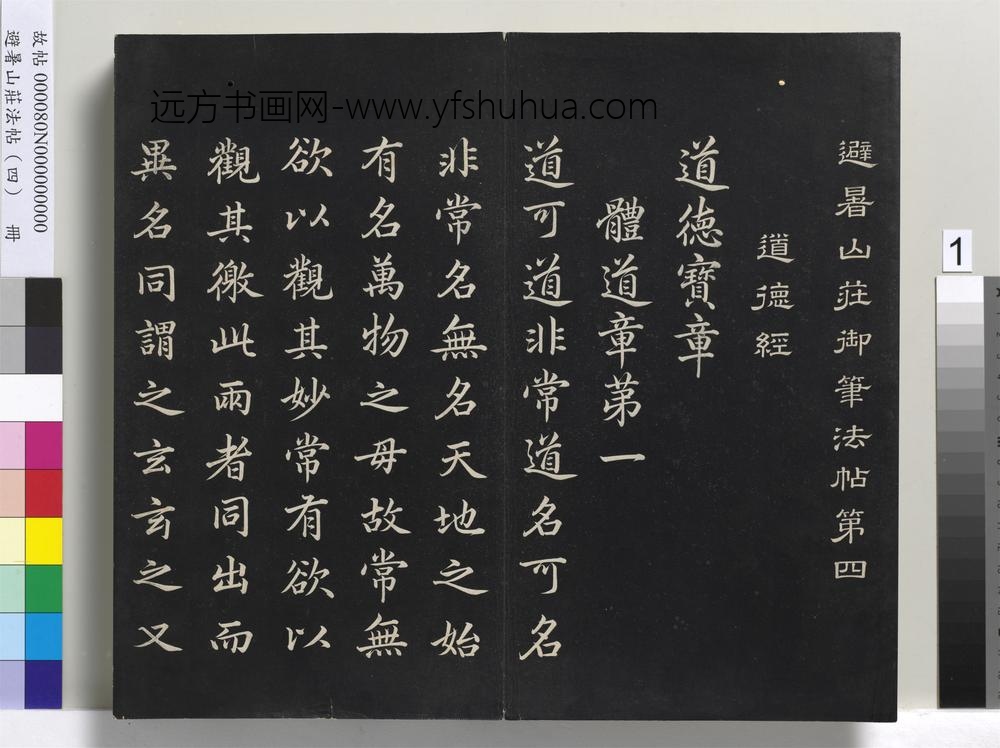 避暑山莊御筆法帖第四
道德經
道德寶章
體道章苐一
道可道非常道名可名
非常名無名天地之始
有名萬物之母故常無
欲以觀其妙常有欲以
觀其徼此兩者同出而
異名同謂之玄玄之又
远方书画网-www.yfshuhua.com
故帖 000080N000000000
避暑山莊法帖（四） 冊
1